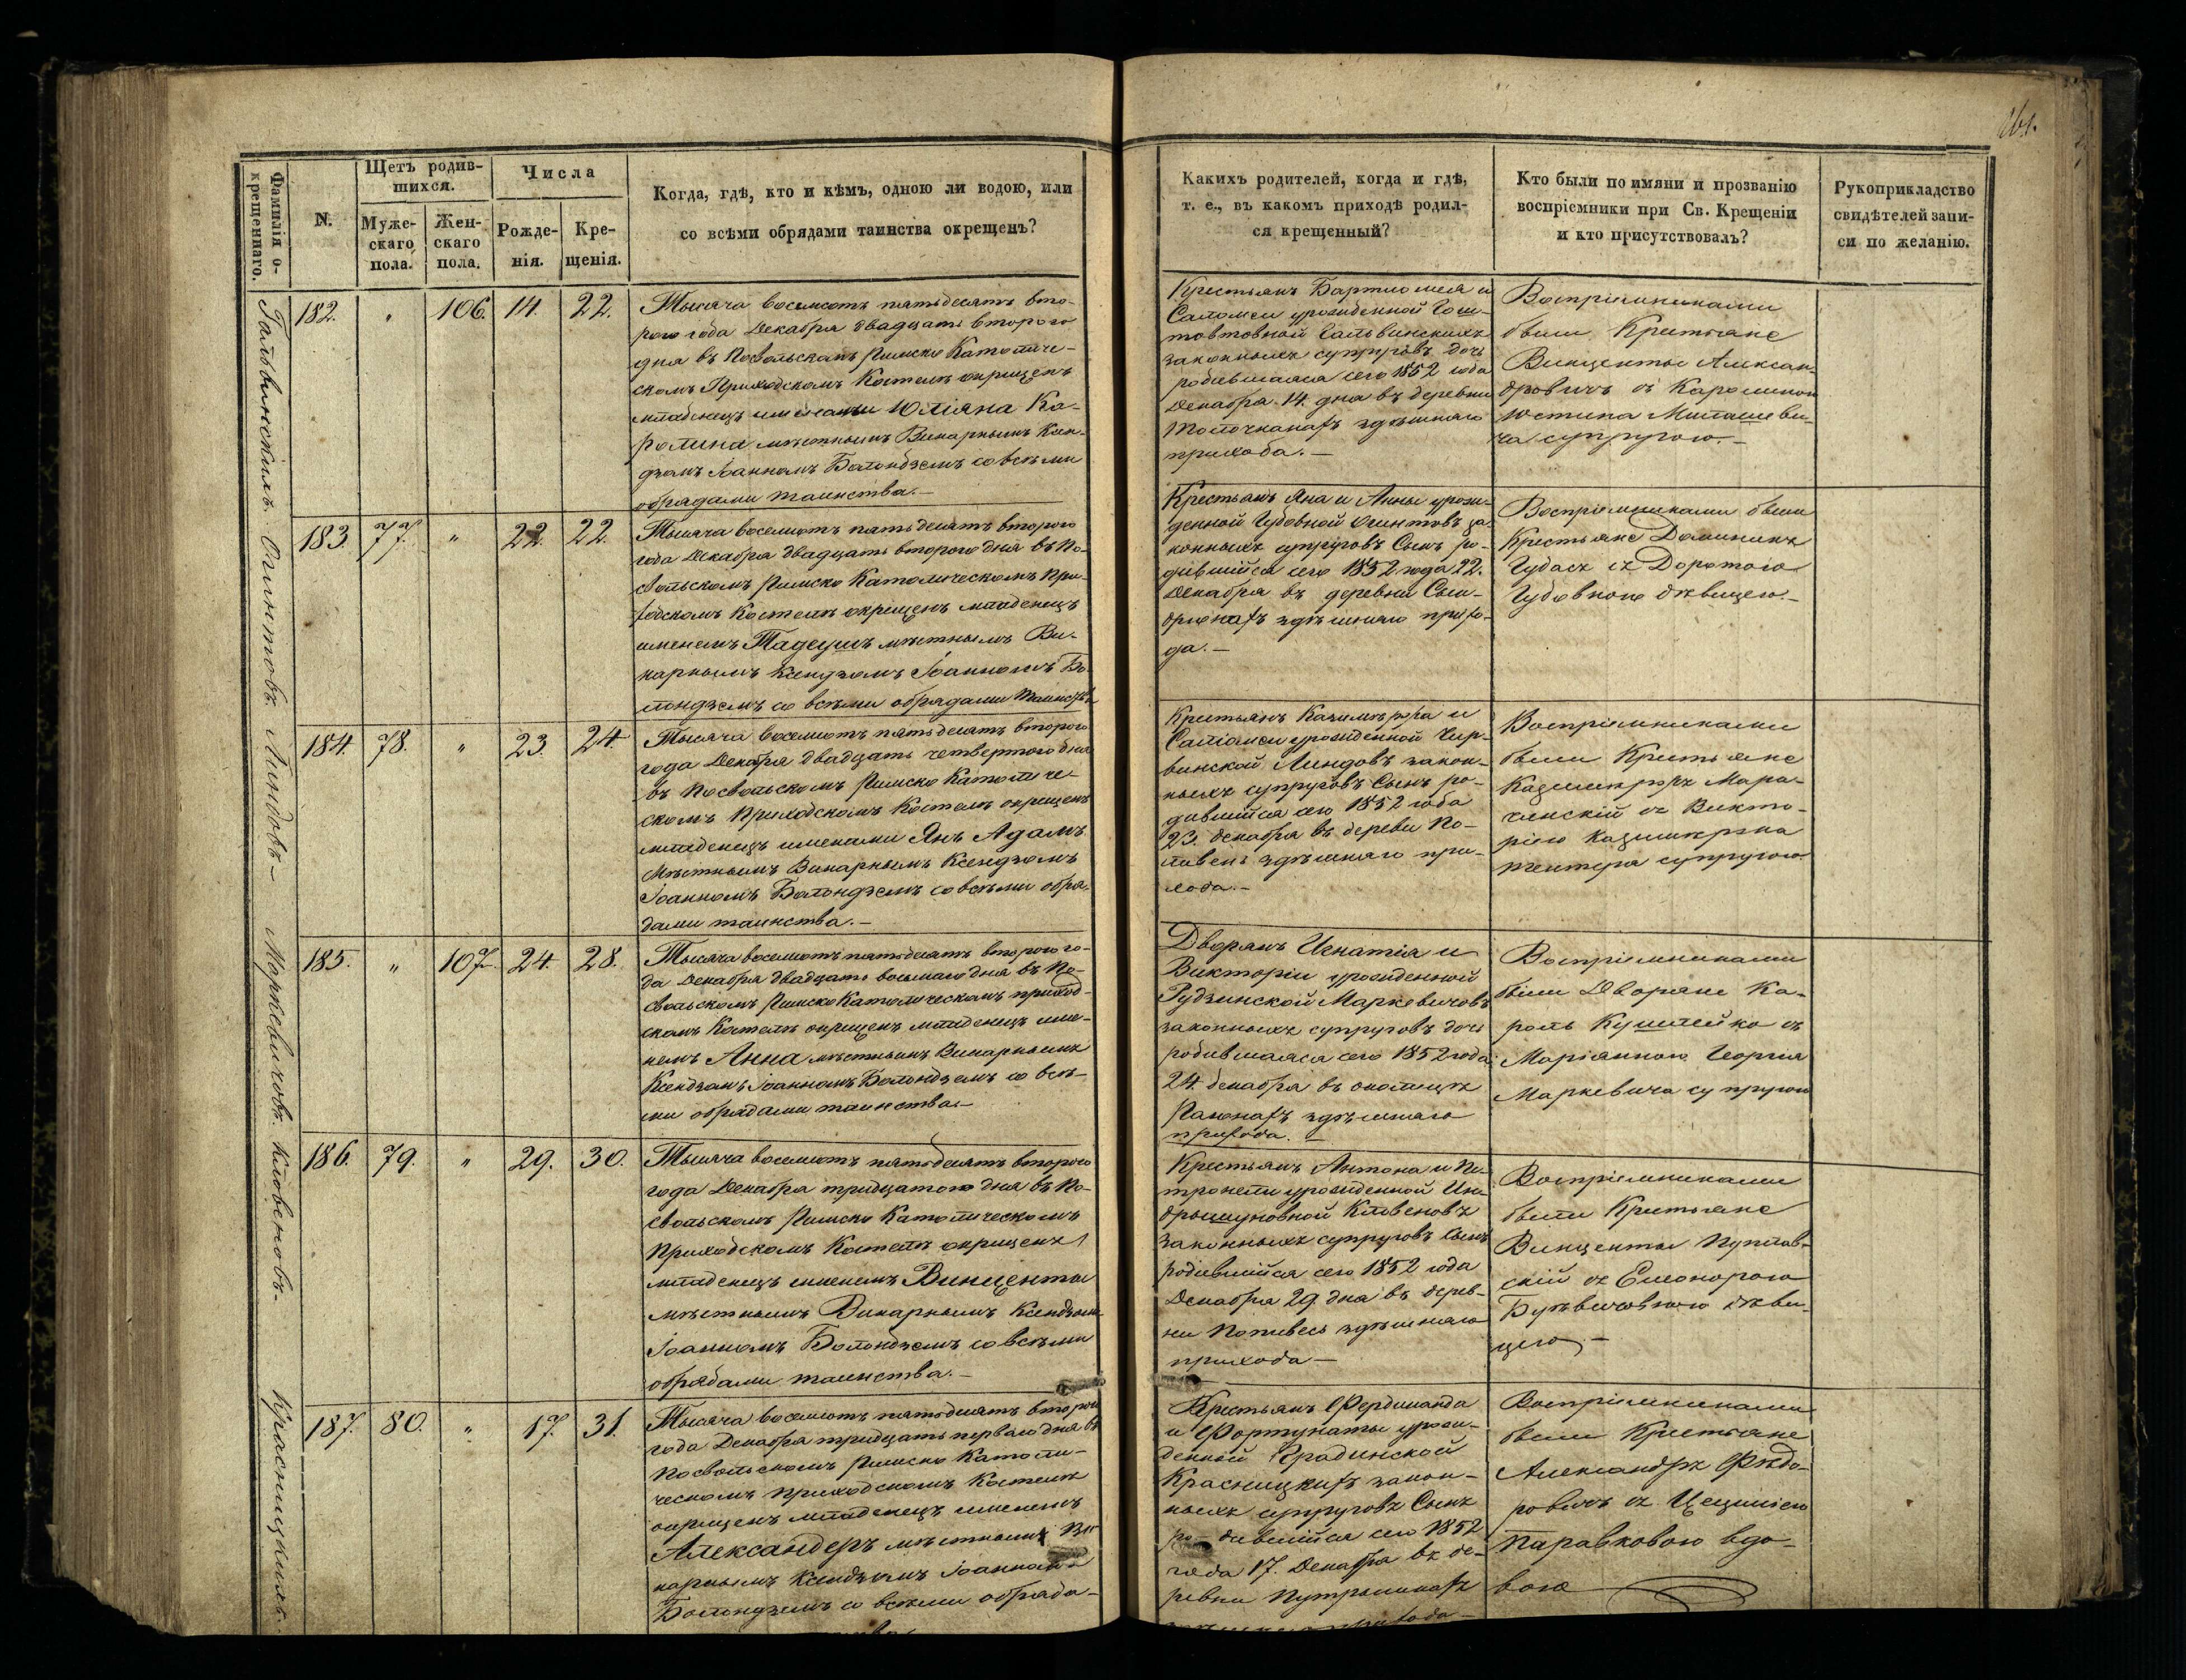 161.
Фамилія о-
крещеннаго.
N.
Щетъ родив-
шихся.
Муже-
скаго
пола.
Жен-
скаго
пола.
Числа
Рожде-
нія.
Кре-
щенія.
Когда, гдѣ, кто и кѣмъ, одною ли водою, или
со всѣми обрядами таинства окрещенъ?
Какихъ родителей, когда и гдѣ,
т. е., въ какомъ приходѣ родил-
ся крещенный?
Кто были по имяни и прозванію
воспріемники при Св. Крещеніи
и кто присутствовалъ?
Рукоприкладство
свидѣтелей запи-
си по желанію.
Гальвинскихъ.
182. " 106. 14. 22.
Тысяча восемсотъ пятьдесятъ вто-
рого года Декабря двадцать второго
дня въ Посвольскомъ Римско Католиче-
скомъ Приходскомъ Костелѣ окрещенъ
младенецъ именами Юліяна Ка-
ролина мѣстнымъ Викарнымъ Ксен-
дзомъ Іоанномъ Болондземъ со всѣми
обрядами таинства.—
Крестьянъ Бартломея и
Саломеи урожденной
Гальвинскихъ
законныхъ супруговъ дочь
родившаяся сего 1852 года
Декабря 14. дня въ деревни
здѣшняго
прихода.—
Воспріемниками
были Крестьяне
Винценты Алексан-
дровичъ съ Каролиною
Юстина Милашеви-
ча супругою.—
Огинтовъ.
183. 77. " 22. 22.
Тысяча восемсотъ пятьдесятъ второго
года Декабря двадцать второго дня въ По-
свольскомъ Римско Католическомъ При-
ходскомъ Костелѣ окрещенъ младенецъ
именемъ Тадеушъ мѣстнымъ Ви-
карнымъ Ксендзомъ Іоанномъ Бо-
лондземъ со всѣми обрядами таинства
Крестьянъ Яна и Анны урож-
денной Чудовной Огинтовъ за-
конныхъ супруговъ Сынъ ро-
дившійся сего 1852 года 22.
Декабря въ деревни
здѣшняго прихо-
да.—
Воспріемниками были
Крестьяне Доминикъ
Чудасъ съ Доротою
Чудовною дѣвицею.—
Линдовъ—
184. 78. " 23. 24.
Тысяча восемсотъ пятьдесятъ второго
года Декабря двадцать четвертого дня
въ Посвольскомъ Римско Католиче-
скомъ Приходскомъ Костелѣ окрещенъ
младенецъ именами Янъ Адамъ
Мѣстнымъ Викарнымъ Ксендзомъ
Іоанномъ Болондземъ со всѣми обря-
дами таинства.—
Крестьянъ Казимѣра и
Саломеи урожденной Чер-
винской Линдовъ закон-
ныхъ супруговъ Сынъ ро-
дившійся сего 1852 года
23. декабря въ деревни По-
здѣшняго при-
хода.—
Воспріемниками
были Крестьяне
Казимиръ
съ Викто-
ріею Казимира
супругою
Маркевичовъ.
185. " 107. 24. 28.
Тысяча восемсотъ пятьдесятъ второго го-
да Декабря двадцать восьмаго дня въ По-
свольскомъ Римско Католическомъ приход-
скомъ Костелѣ окрещенъ младенецъ име-
немъ Анна мѣстнымъ Викарнымъ
Ксендзомъ Іоанномъ Болондземъ со всѣ-
ми обрядами таинства.—
Дворянъ Игнатія и
Викторіи урожденной
Рудзинской Маркевичовъ
законныхъ супруговъ дочь
родившаяся сего 1852 года
24. декабря въ околицѣ
здѣшняго
прихода.—
Воспріемниками
были Дворяне Ка-
роль Кушлейко съ
Маріянною Георгія
Маркевича супругою
Кловеновъ—
186. 79. " 29. 30.
Тысяча восемсотъ пятьдесятъ второго
года Декабря тридцатого дня въ По-
свольскомъ Римско Католическомъ
Приходскомъ Костелѣ окрещенъ
младенецъ именемъ Винценты
мѣстнымъ Викарнымъ Ксендзомъ
Іоанномъ Болондземъ со всѣми
обрядами таинства.—
Крестьянъ Антона и Пе-
тронели урожденной Ин-
дрышуновной Кловеновъ
законныхъ супруговъ Сынъ
родившійся сего 1852 года
Декабря 29. дня въ дерев-
ни здѣшняго
прихода—
Воспріемниками
были Крестьяне
Винценты
съ Елеонорою
дѣви-
цею—
Красницкихъ.
187. 80. " 17. 31.
Тысяча восемсотъ пятьдесятъ второго
года Декабря тридцать перваго дня въ
Посвольскомъ Римско Католи-
ческомъ приходскомъ Костелѣ
окрещенъ младенецъ именемъ
Александеръ мѣстнымъ Ви-
карнымъ Ксендзомъ Іоанномъ
Болондземъ со всѣми обряда-
Крестьянъ Фердинанда
и Фортунаты урож-
денной Градинской
Красницкихъ закон-
ныхъ супруговъ Сынъ
ро- дившійся сего 1852
года 17. Декабря въ де-
ревни
прихода—
Воспріемниками
были Крестьяне
Александръ Фѣдо-
ровичъ съ Цециліею
Паравковою вдо-
вою